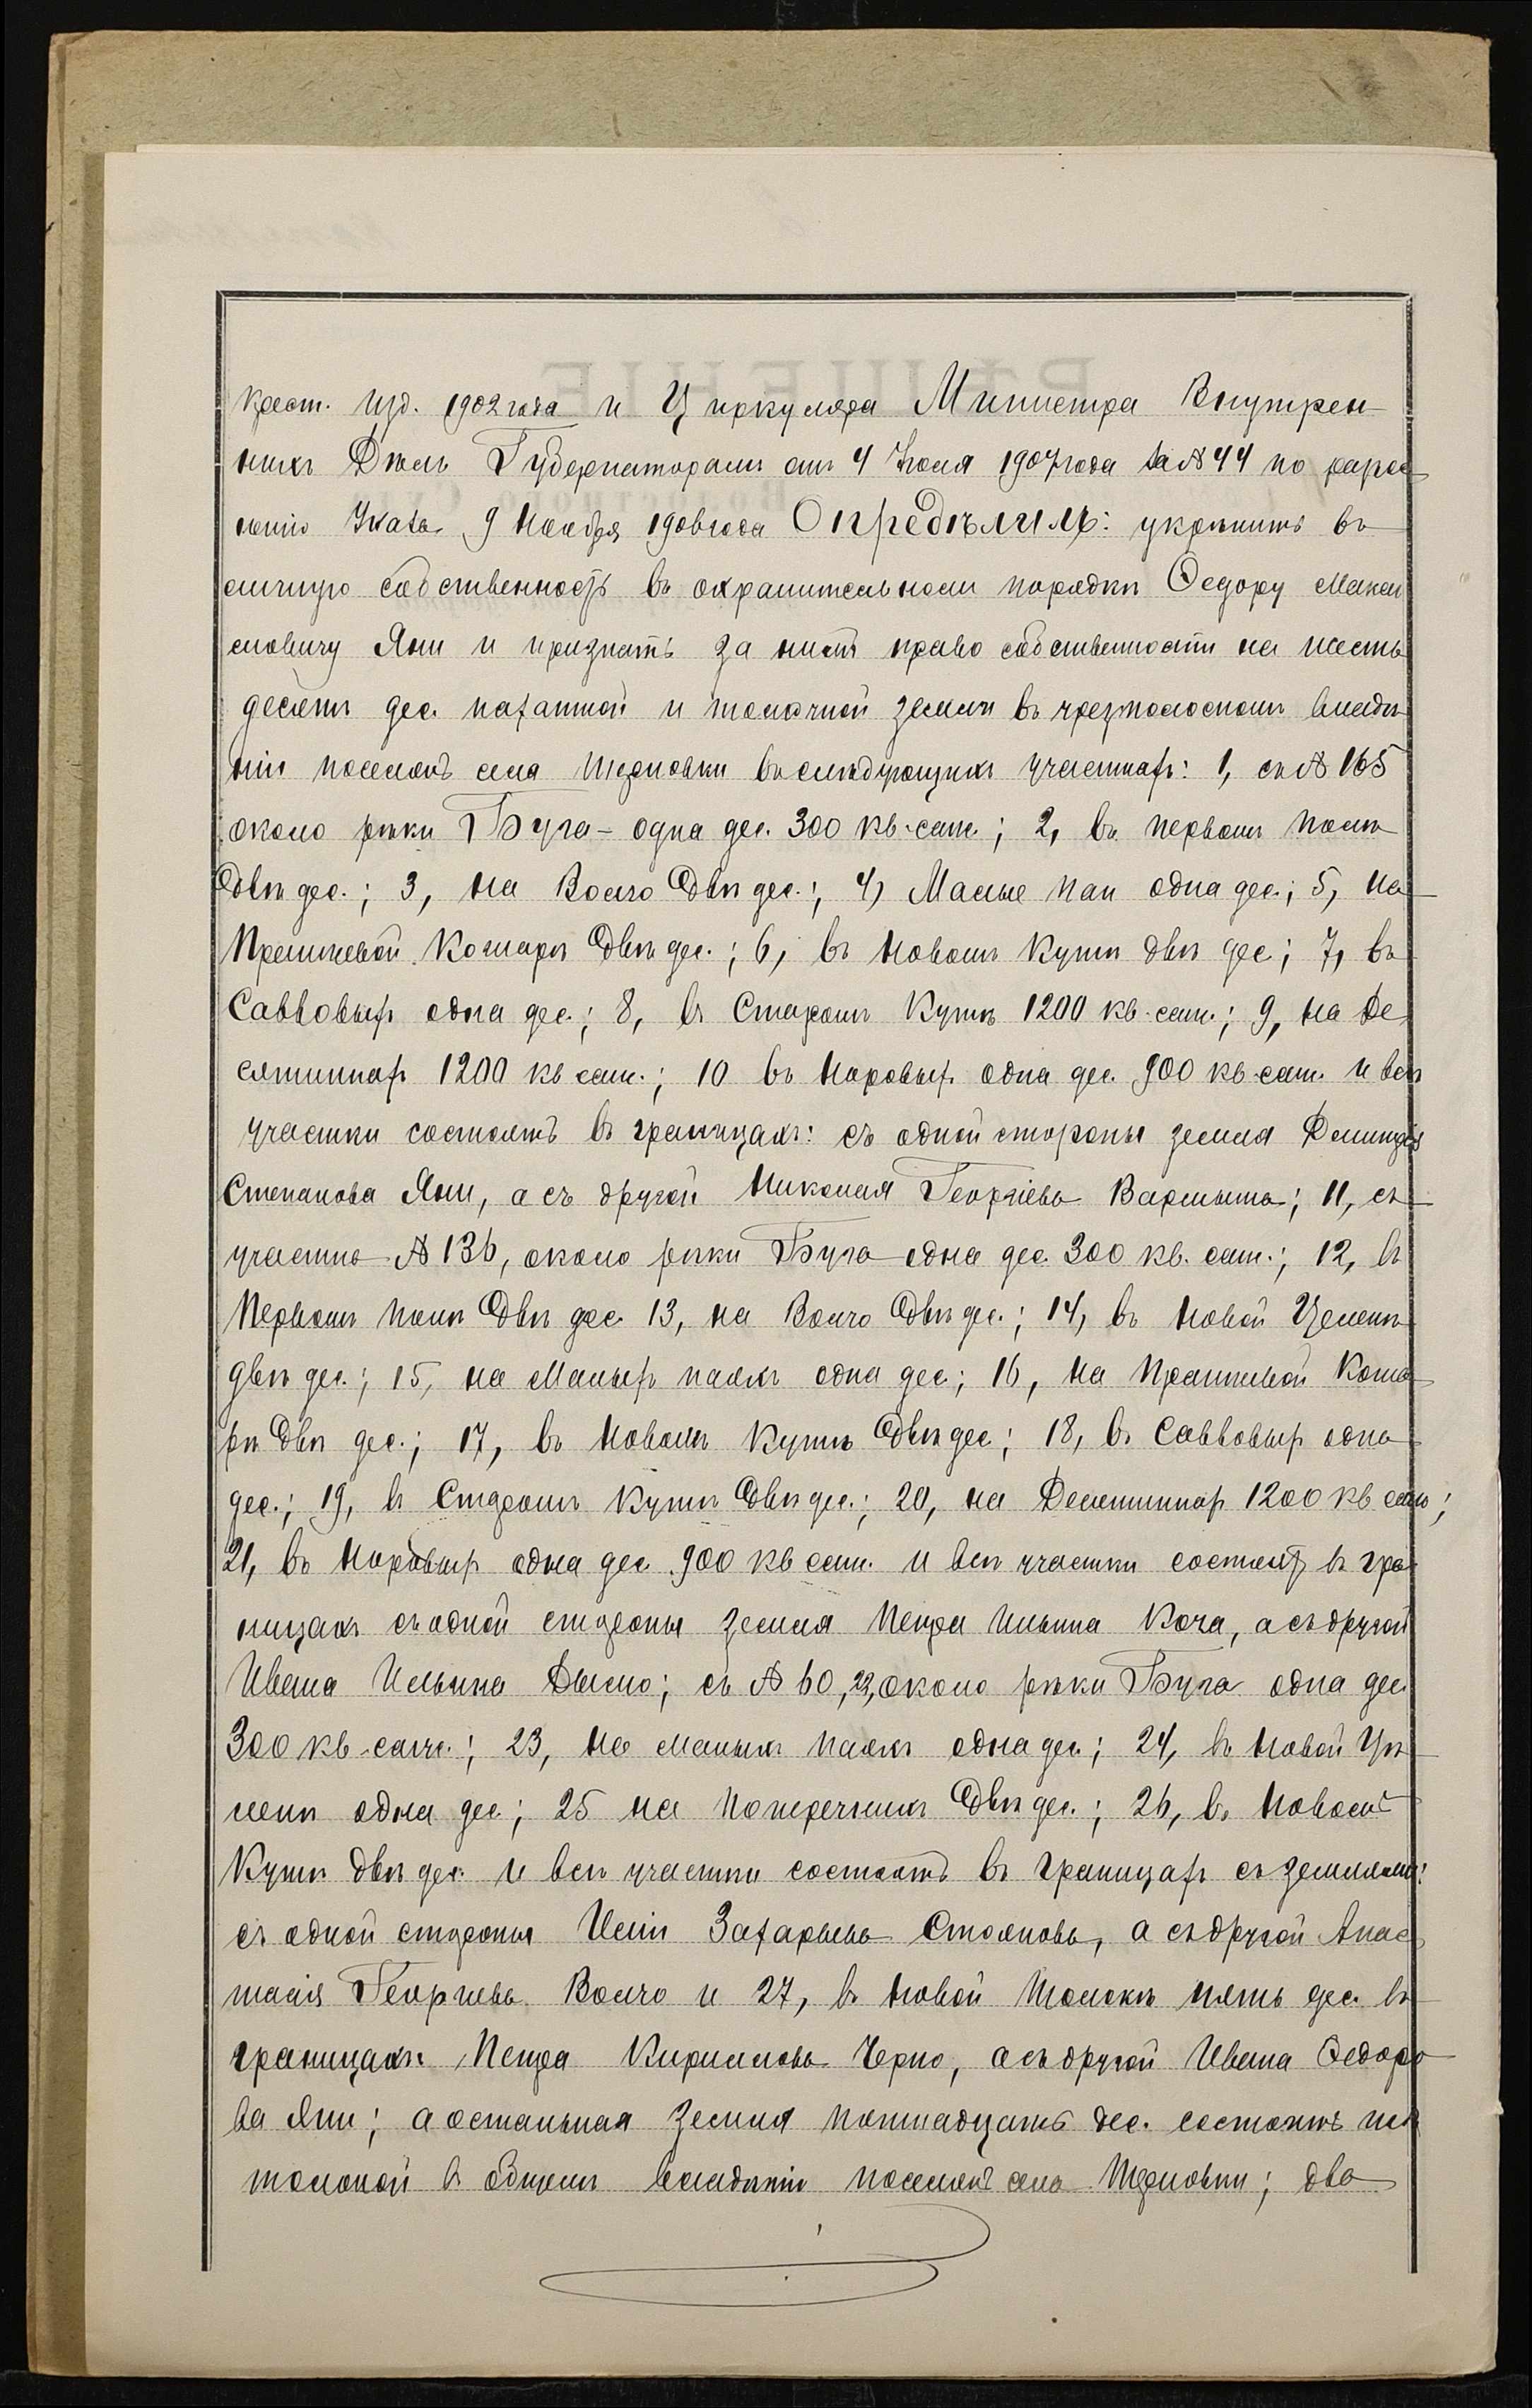 Крест. изд. 1902 года и Циркуляра Министра Внутрен-
нихъ Дѣлъ Губернаторамъ отъ 4 Іюля 1907 года за № 44 по
Указа 9 Ноября 1906 года Опредѣлилъ: укрѣпить въ
личную собственность въ охранительномъ порядкѣ Ѳедору Макси
мовичу Яни и признать за нимъ право собственности на шесть
десятъ дес. пахатной и толочной земли въ чрезполосномъ владѣ
ніи поселянъ села Терновки въ слѣдующихъ участкахъ: 1, съ № 165
около рѣки Буга - одна дес. 300 кв. саж.; 2, въ первомъ полѣ
двѣ дес.; 3, на Волчо двѣ дес.; 4) Малые паи одна дес.; 5, на
Кошарѣ двѣ дес.; 6, въ Новомъ Кутѣ двѣ дес; 7, въ
Саввовыхъ одна дес.; 8, въ Старомъ Кутѣ 1200 кв. саж.; 9, на Де
сятинкахъ 1200 кв саж.; 10 въ Норовыхъ одна дес. 900 кв. саж. и всѣ
участки состоятъ въ границахъ: съ одной стороны земля
Степанова Яни, а съ другой Николая Георгіева; 11, съ
участка № 136, около рѣки Буга одна дес. 300 кв. саж.; 12, въ
Первомъ полѣ двѣ дес. 13, на Волчо двѣ дес.; 14, въ Новой Целенѣ
двѣ дес.; 15, на Малыхъ паяхъ одна дес; 16, на Коша
рѣ двѣ дес.; 17, въ Новомъ Кутѣ двѣ дес; 18, въ Саввовыхъ одна
дес.; 19, въ Старомъ Кутѣ двѣ дес.; 20, на Десятинкахъ 1200 кв саж;
21, въ Норовыхъ одна дес. 900 кв саж. и всѣ участки состоятъ въ гра
ницахъ съ одной стороны земля Петра Ильина Коча, а съ другой
Ивана Ильина; съ № 60, 22, около рѣки Буга одна дес.
300 кв. саж.; 23, на малыхъ паяхъ одна дес.; 24, въ Новой Це
ленѣ одна дес; 25 на Поперечныхъ двѣ дес.; 26, въ Новомъ
Кутѣ двѣ дес. и всѣ участки состоятъ въ границахъ съ землями:
съ одной стороны Захарьева Стоянова, а съ другой Анас
тасія Георгіева Волчо и 27, въ Новой Толокѣ пять дес. въ
границахъ Петра Кириллова Черно, а съ другой Ивана Ѳедоро
ва Яни; а остальная земля пятнадцать дес. состоитъ подъ
толокой въ общемъ владѣніи поселянъ села Терновки; два